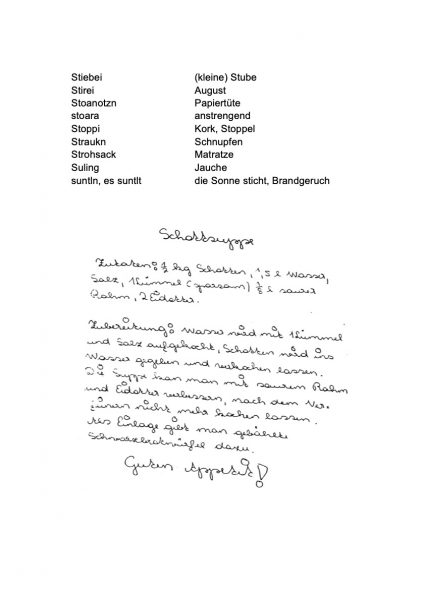 Stiebei (kleine) Stube
Stirei August
Stoanotzn Papiertüte
stoara anstrengend
Stoppi Kork, Stoppel
Straukn Schnupfen
Strohsack Matratze
Suling Jauche
suntln, es suntlt die Sonne sticht, Brandgeruch
Schottsuppe
Zutaten: ½ kg Schotten, 1,5 l Wasser,
Salz, Kümmel (sparsam) ½ l saurer
Rahm, 2 Eidotter.
Zubereitung: Wasser wird mit Kümmel
und Salz aufgekocht, Schotten wird ins
Wasser gegeben und verkochen lassen.
Die Suppe kan man mit saurem Rahm
und Eidotter verbessern, nach dem Ver-
rühren nicht mehr kochen lassen.
Als Einlage gibt man gebähte
Schwarzbrotwürfel dazu.
Guten Appetit!